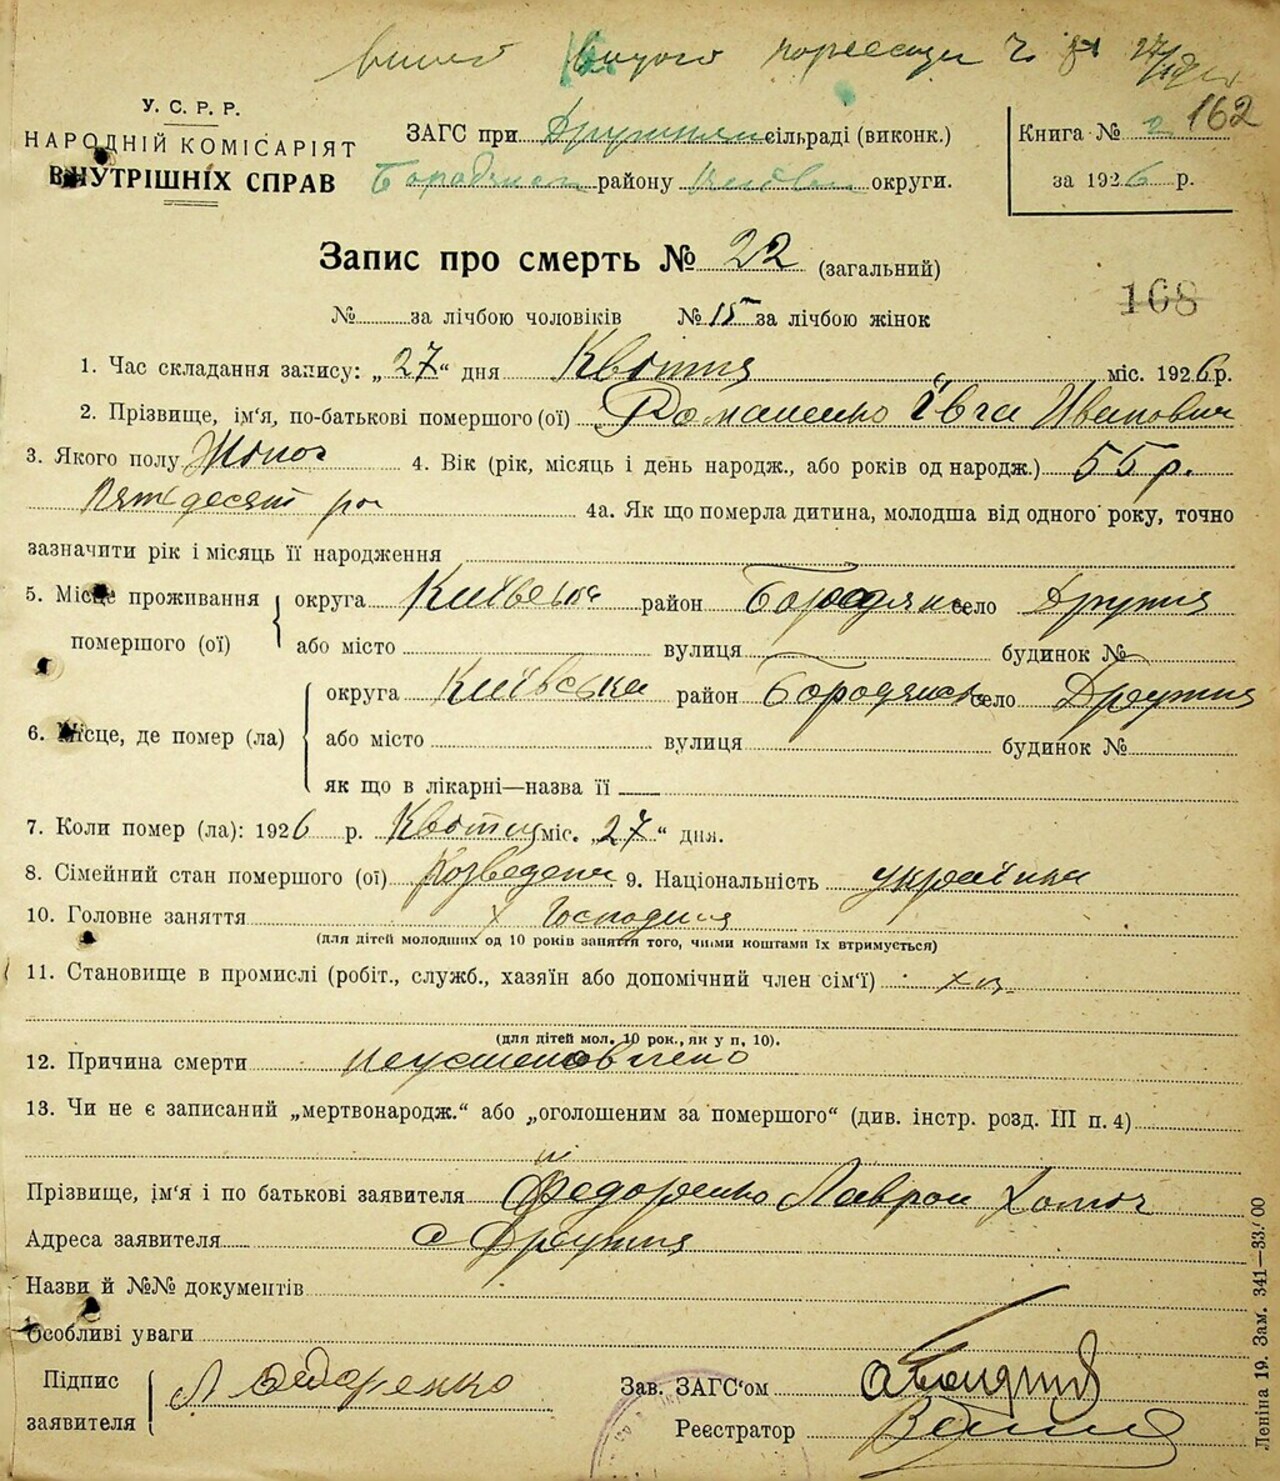 У. С. Р. Р.
НАРОДНІЙ КОМІСАРІЯТ
ВНУТРІШНІХ СПРАВ
ЗАГС при сільраді (виконк.)
району округи.
Книга № 2 162
за 1926 р.
Запис про смерть № 22 (загальний)
168
№ за лічбою чоловіків № 15 за лічбою жінок
1. Час складання запису: „27“ дня Квітня міс. 1926 р.
2. Прізвище, ім'я, по-батькові помершого (ої) Романенко Івга Иванович
3. Якого полу Жіноч 4. Вік (рік, місяць і день народж., або років од народж.) 55 р.
4а. Як що померла дитина, молодша від одного року, точно
зазначити рік і місяць її народження
5. Місце проживання помершого (ої)
округа Київська район Бородянск село Дружня
або місто вулиця будинок №
6. Місце, де помер (ла)
округа Київська район Бородянськ село Дружня
або місто вулиця будинок №
як що в лікарні—назва її
7. Коли помер (ла): 1926 р. Квітня міс. „27“ дня.
8. Сімейний стан помершого (ої) Розведена 9. Національність українка
10. Головне заняття Господиня
(для дітей молодших од 10 років заняття того, чиїми коштами їх втримується)
11. Становище в промислі (робіт., служб., хазяїн або допомічний член сім'ї)
(для дітей мол. 10 рок., як у п. 10).
12. Причина смерти неустановлено
13. Чи не є записаний „мертвонародж.“ або „оголошеним за помершого“ (див. інстр. розд. III п. 4)
Прізвище, ім'я і по батькові заявителя Федоренко
Адреса заявителя с Дружня
Назви й №№ документів
Особливі уваги
Підпис заявителя
Зав. ЗАГС'ом
Реєстратор
Леніна 19. Зам. 341—33/00